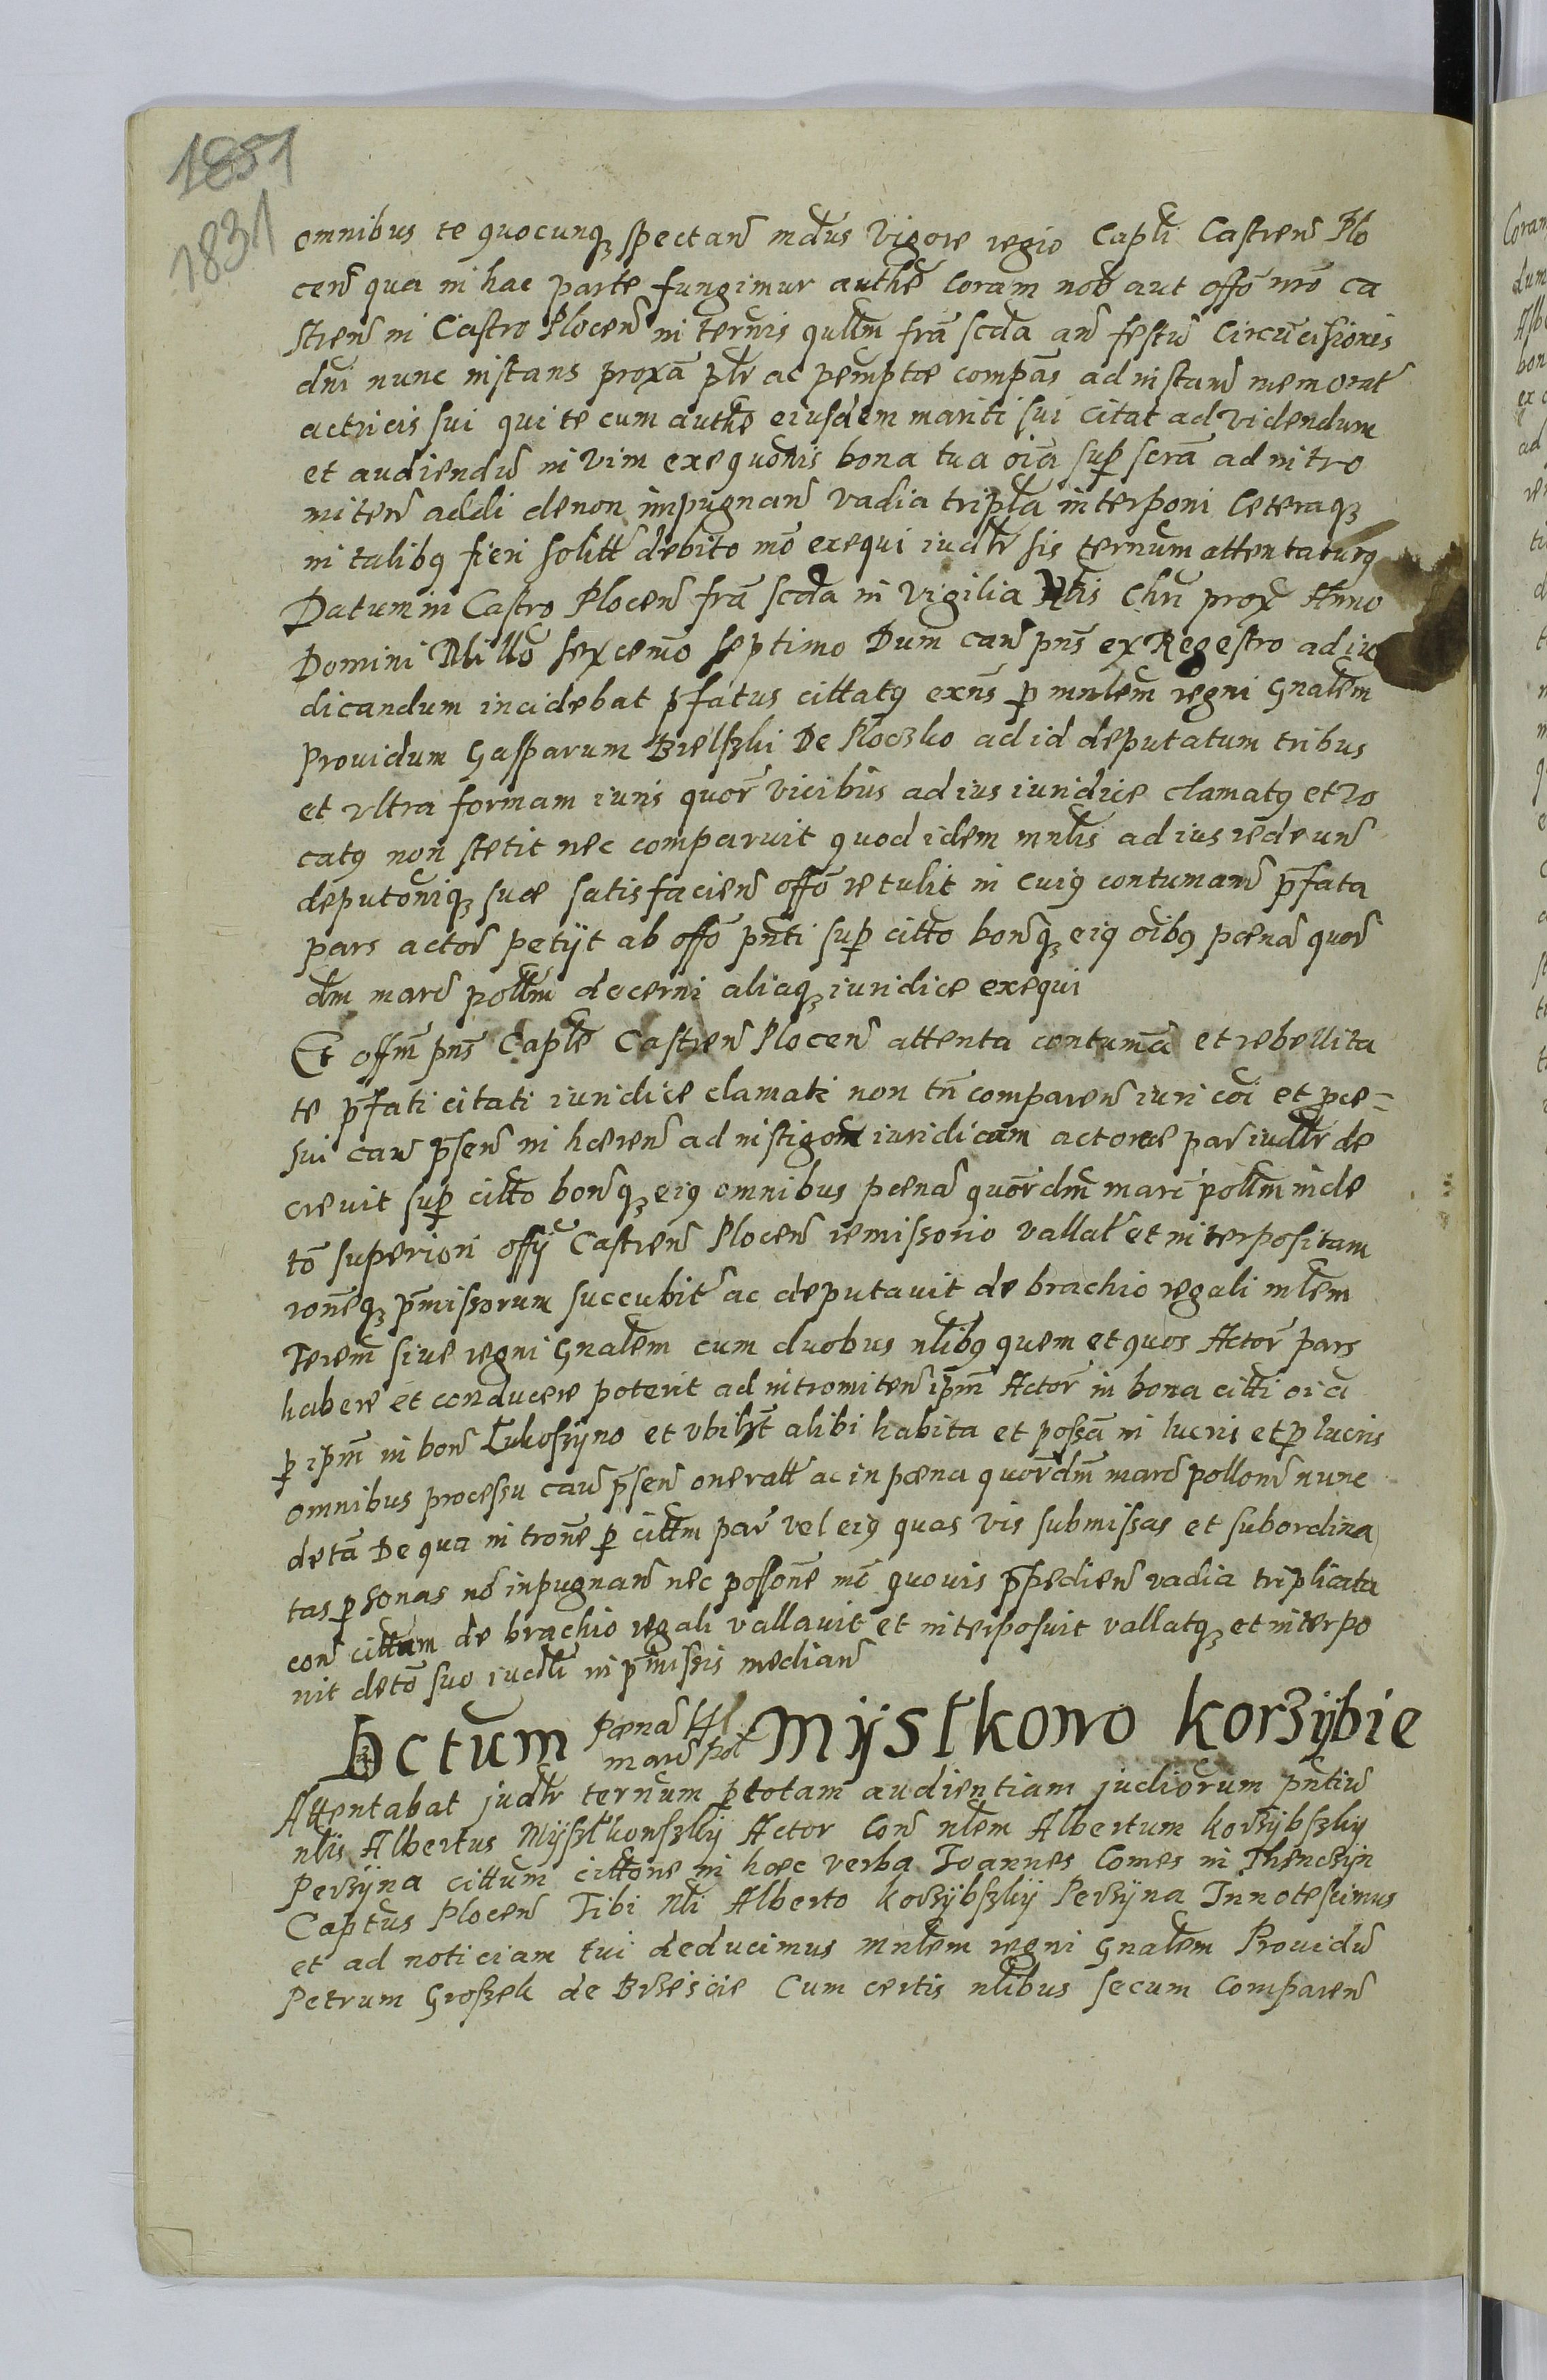 1851
1831
omnibus te quocunqꝫ spectan̄ mdus Vigore regio Capli Castren̄ Plo
cen̄ qua in hac parte fungimur authē Coram nob aut offō nrō ca
stren̄ in Castro Plocen̄ in ternis qullm frā scda an̄ festū Circūcisionis
dni nunc instans proxā plr ac pemptoe compās ad instan̄ memorat̄
actricis sui qui te cum authe eiusdem mariti sui citat ad videndum
et audiendū in vim exequōnis bona tua oīa sup scrā ad intro
miten̄ addi de non impugnan̄ vadia tripla interponi Ceteraqꝫ
in talibꝯ fieri solitt debito mō exequi iudlr sis ternum attentaturꝯ
Datum in Castro Plocen̄ frā scda in Vigilia Ntis Chri prox Anno
Domini Millō sexcemō septimo Dum can̄ pns ex Regestro ad iu
dicandum incidebat pfatus cittatꝯ exns p mnlem regni Gnalem
Prouidum Gasparum Bielszki De Ploczko ad id deputatum tribus
et vltra formam iuris quor̄ vicibus ad ius iuridice clamatꝯ et vo
catꝯ non stetit nec comparuit quod idem mnlis ad ius redeun̄
deputōniqꝫ suæ satisfacien̄ offō retulit in cuiꝯ contuman̄ pfata
pars actor̄ petijt ab offō pnti sup citto bon̄qꝫ eiꝯ oibꝯ pœna quor̄
dm mar̄ pollm decerni aliaqꝫ iuridice exequi
Et offm pns Caple Castren̄ Plocen̄ attenta contumā et rebellita
te pfati citati iuridice clamati non tn comparen̄ iuri coi et pce=
sui can̄ psen̄ in hæren̄ ad instigom iuridicam actoreæ par̄ iudlr de
creuit sup citto bon̄qꝫ eiꝯ omnibus pœna quor̄dm mar̄ pollm inde
tō superiori offij Castren̄ Plocen̄ remissorio vallat̄ et interpositam
ronēqꝫ pmissorum succubit̄ ac deputauit de brachio regali mlem
Terem̄ siue regni Gnalem cum duobus nlibꝯ quem et quos Actor̄ pars
habere et conducere poterit ad intromiten̄ ipm̄ Actor̄ in bona citti oia
p ipm̄ in bon̄ Lukoszyno et vbilꝫt alibi habita et possā in lucris et p lucris
omnibus processu can̄ psen̄ oneratt ac in pœna quor̄dm mar̄ pollon̄ nunc
detā De qua in trone p cittm par̄ vel eiꝯ quas vis submissas et subordina
tas psonas nō inpugnan̄ nec possonē mō quouis ppedien̄ vadia triplicata
con̄ cittam de brachio regali vallauit et interposuit vallatqꝫ et interpo
nit detō suo iudli in pmissis median̄
Actum pœna
mar̄ pol Mÿstkowo korzÿbie
Attentabat judlr ternum p totam audientiam judiorum pntiū
nlis Albertus Mÿstkowszkÿ Actor Con̄ nlem Albertum korzÿbszkÿ
Perzÿna cittum cittone in hæc verba Joannes Comes in Thenczÿn
Captus Plocen̄ Tibi Nli Alberto korzÿbszkÿ Perzÿna Innotescimus
et ad noticiam tui deducimus mnlem regni Gnalem Prouidū
Petrum Groszek de Brzescie Cum certis nlibus secum Comparen̄